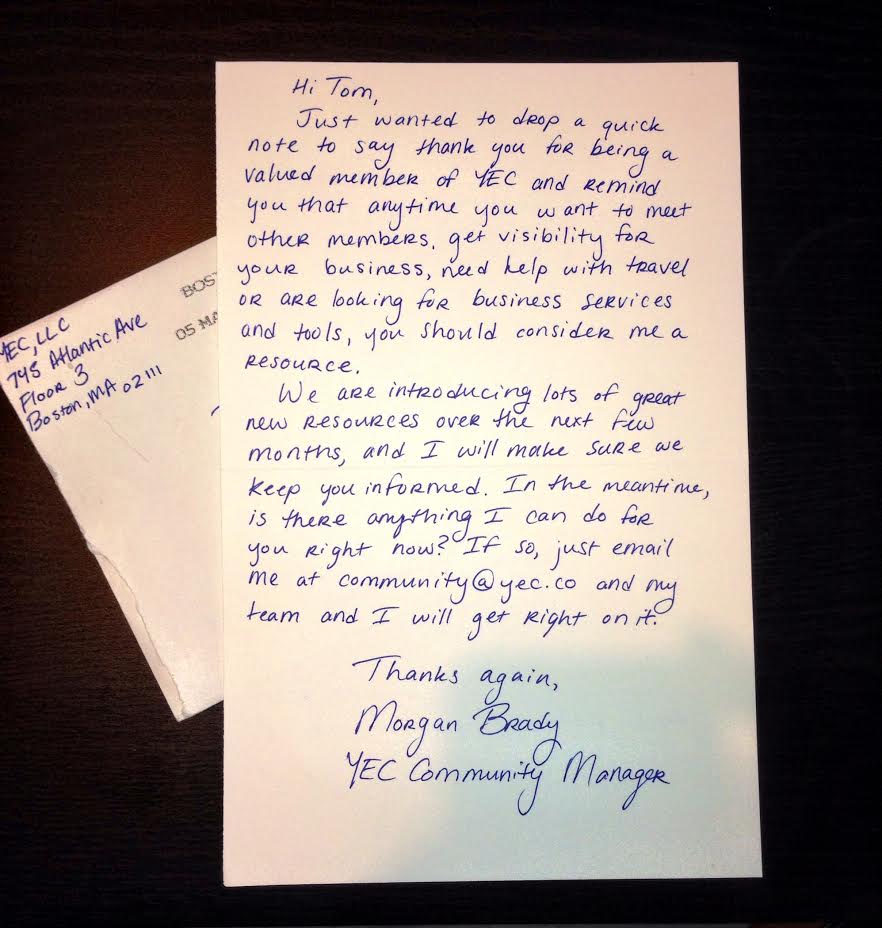 Hi Tom,
Just wanted to drop a quick
note to say thank you for being a
valued member of YEC and remind
you that anytime you want to meet
other members, get visibility for
your business, need help with travel
or are looking for business services
and tools, you should consider me a
resource.
We are introducing lots of great
new resources over the next few
months, and I will make sure we
keep you informed. In the meantime,
is there anything I can do for
you right now? If so, just email
me at community@yec.co and my
team and I will get right on it.
Thanks again,
Morgan Brady
YEC Community Manager
YEC, LLC
745 Atlantic Ave
Floor 3
Boston, MA 02111
05